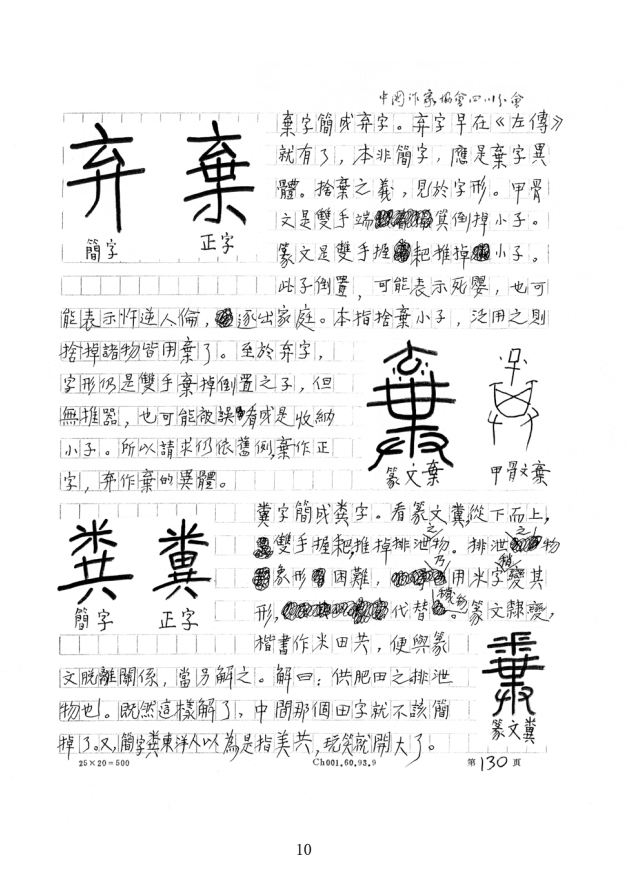 中国作家協會四川分會
弃 棄
簡字 正字
棄字簡成弃字。弃字早在《左傳》
就有了，本非簡字，應是棄字異
體。捨棄之義，見於字形。甲骨
文是雙手端箕倒掉小子。
篆文是雙手握耙推掉小子。
此子倒置，可能表示死嬰，也可
能表示忤逆人倫，逐出家庭。本指捨棄小子，泛用之則
捨掉諸物皆用棄了。至於弃字，
字形仍是雙手棄掉倒置之子，但
無推器，也可能被誤看成是收納
小子。所以請求仍依舊例，棄作正
字，弃作棄的異體。
篆文棄 甲骨文棄
粪 糞
簡字 正字
糞字簡成粪字。看篆文糞，從下而上，
雙手握耙，推掉排泄之物。排泄之物
象形困難，乃用米字稍變其
形，代替。篆文隸變，
楷書作米田共，便與篆
文脫離關係，當另解之。解曰：供肥田之排泄
物也。既然這樣解了，中間那個田字就不該簡
掉了。又，簡字粪東洋人以為是指美共，玩笑就開大了。
篆文糞
25×20=500 Ch001.60.93.9 第130頁
10